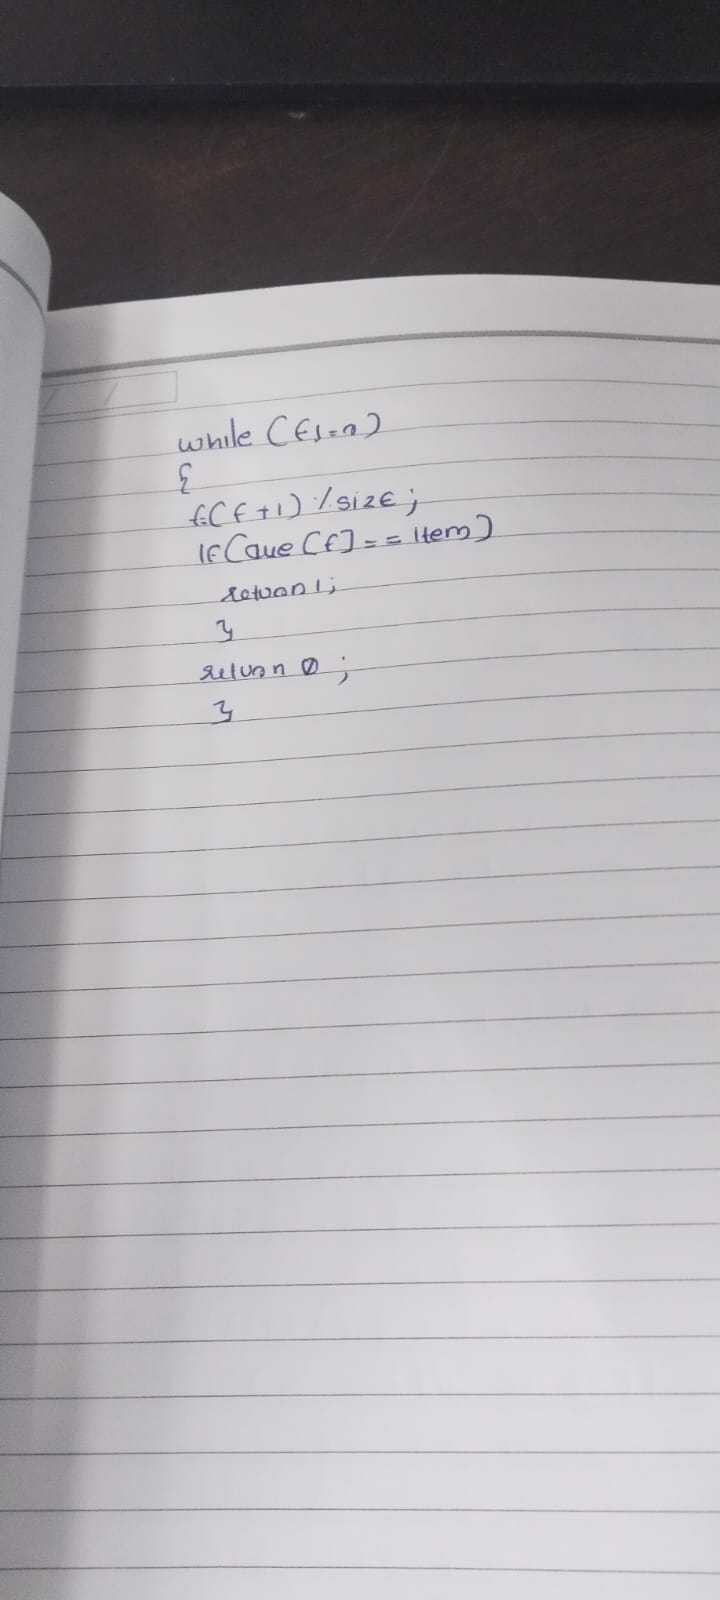 while (f!=r)
{
f=(f+1) % size;
if(que[f]==item)
return 1;
}
return 0;
}